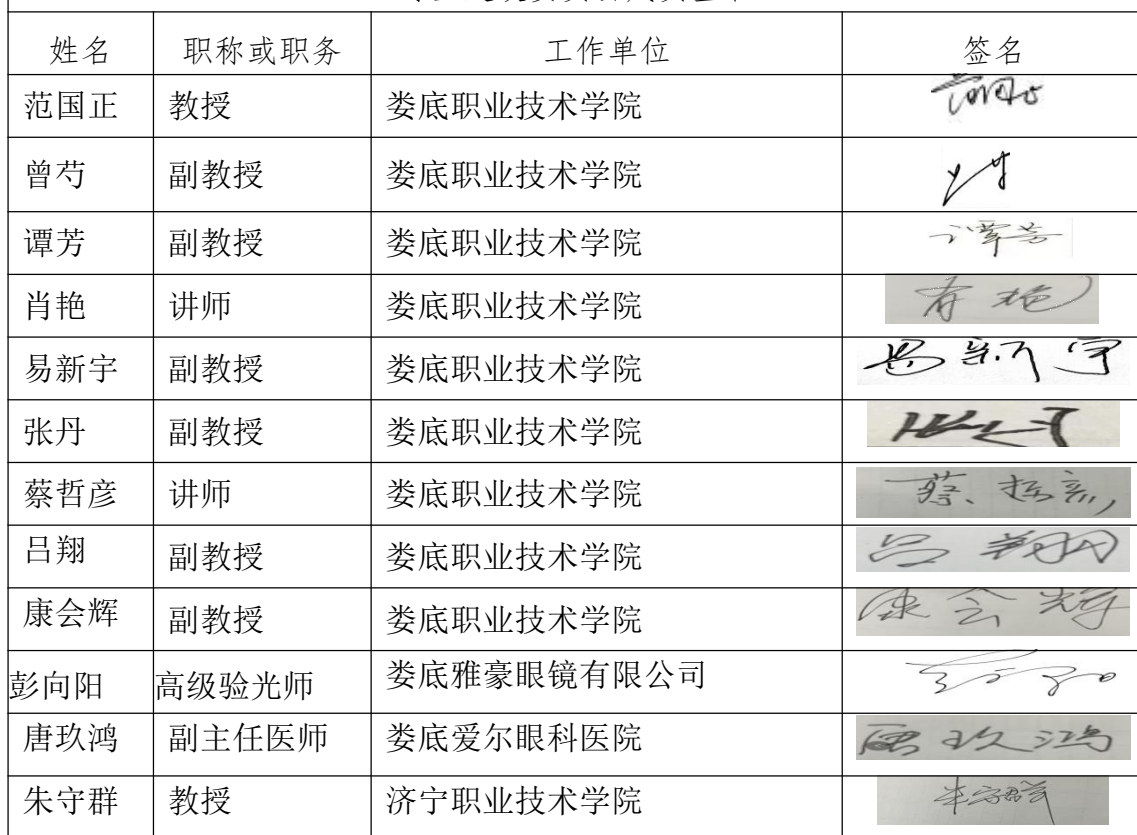 姓名 职称或职务 工作单位 签名
范国正 教授 娄底职业技术学院
曾芍 副教授 娄底职业技术学院
谭芳 副教授 娄底职业技术学院 谭芳
肖艳 讲师 娄底职业技术学院 肖艳
易新宇 副教授 娄底职业技术学院 易新宇
张丹 副教授 娄底职业技术学院
蔡哲彦 讲师 娄底职业技术学院 蔡哲彦
吕翔 副教授 娄底职业技术学院 吕翔
康会辉 副教授 娄底职业技术学院 康会辉
彭向阳 高级验光师 娄底雅豪眼镜有限公司
唐玖鸿 副主任医师 娄底爱尔眼科医院 唐玖鸿
朱守群 教授 济宁职业技术学院 朱守群